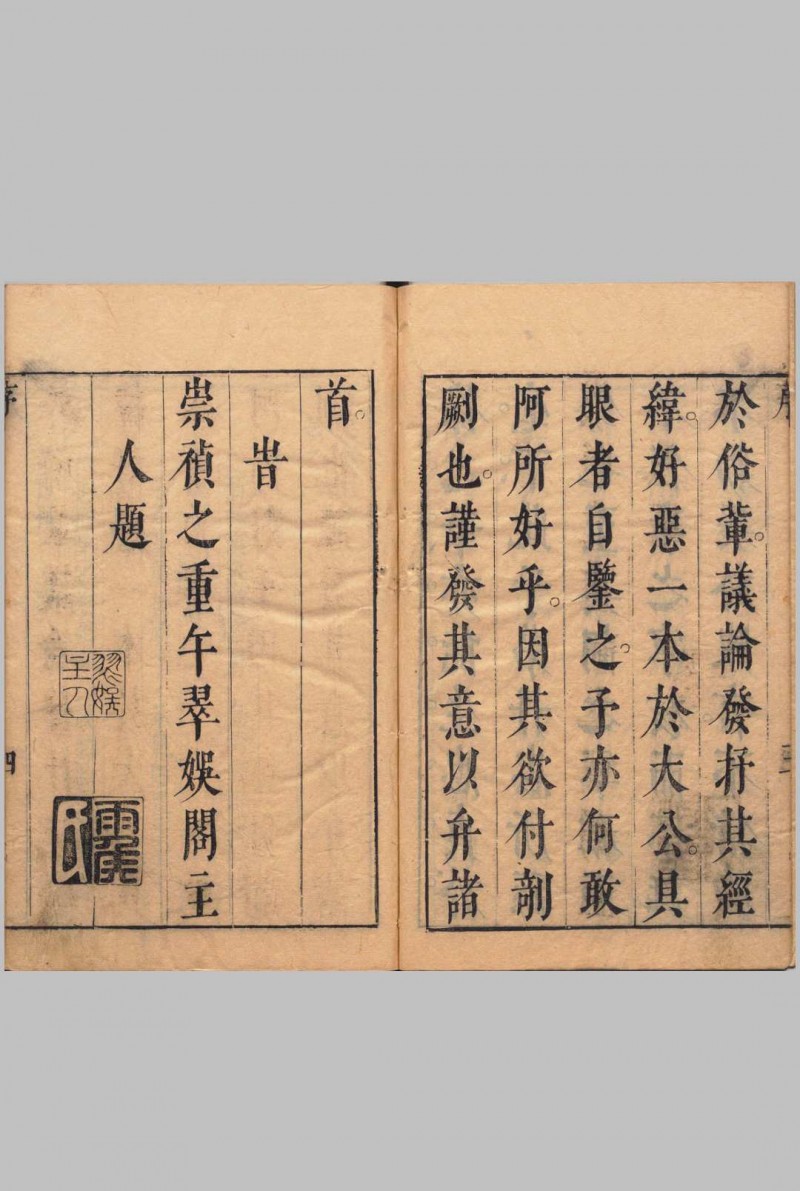 於俗輩。議論發抒其經
緯。好惡一本於大公。具
眼者自鑒之。予亦何敢
阿所好乎。因其欲付剞
劂也。謹發其意以弁諸
首。
旹
崇禎之重午翠娛閣主
人題
翠娛
主人
雨侯
氏
四